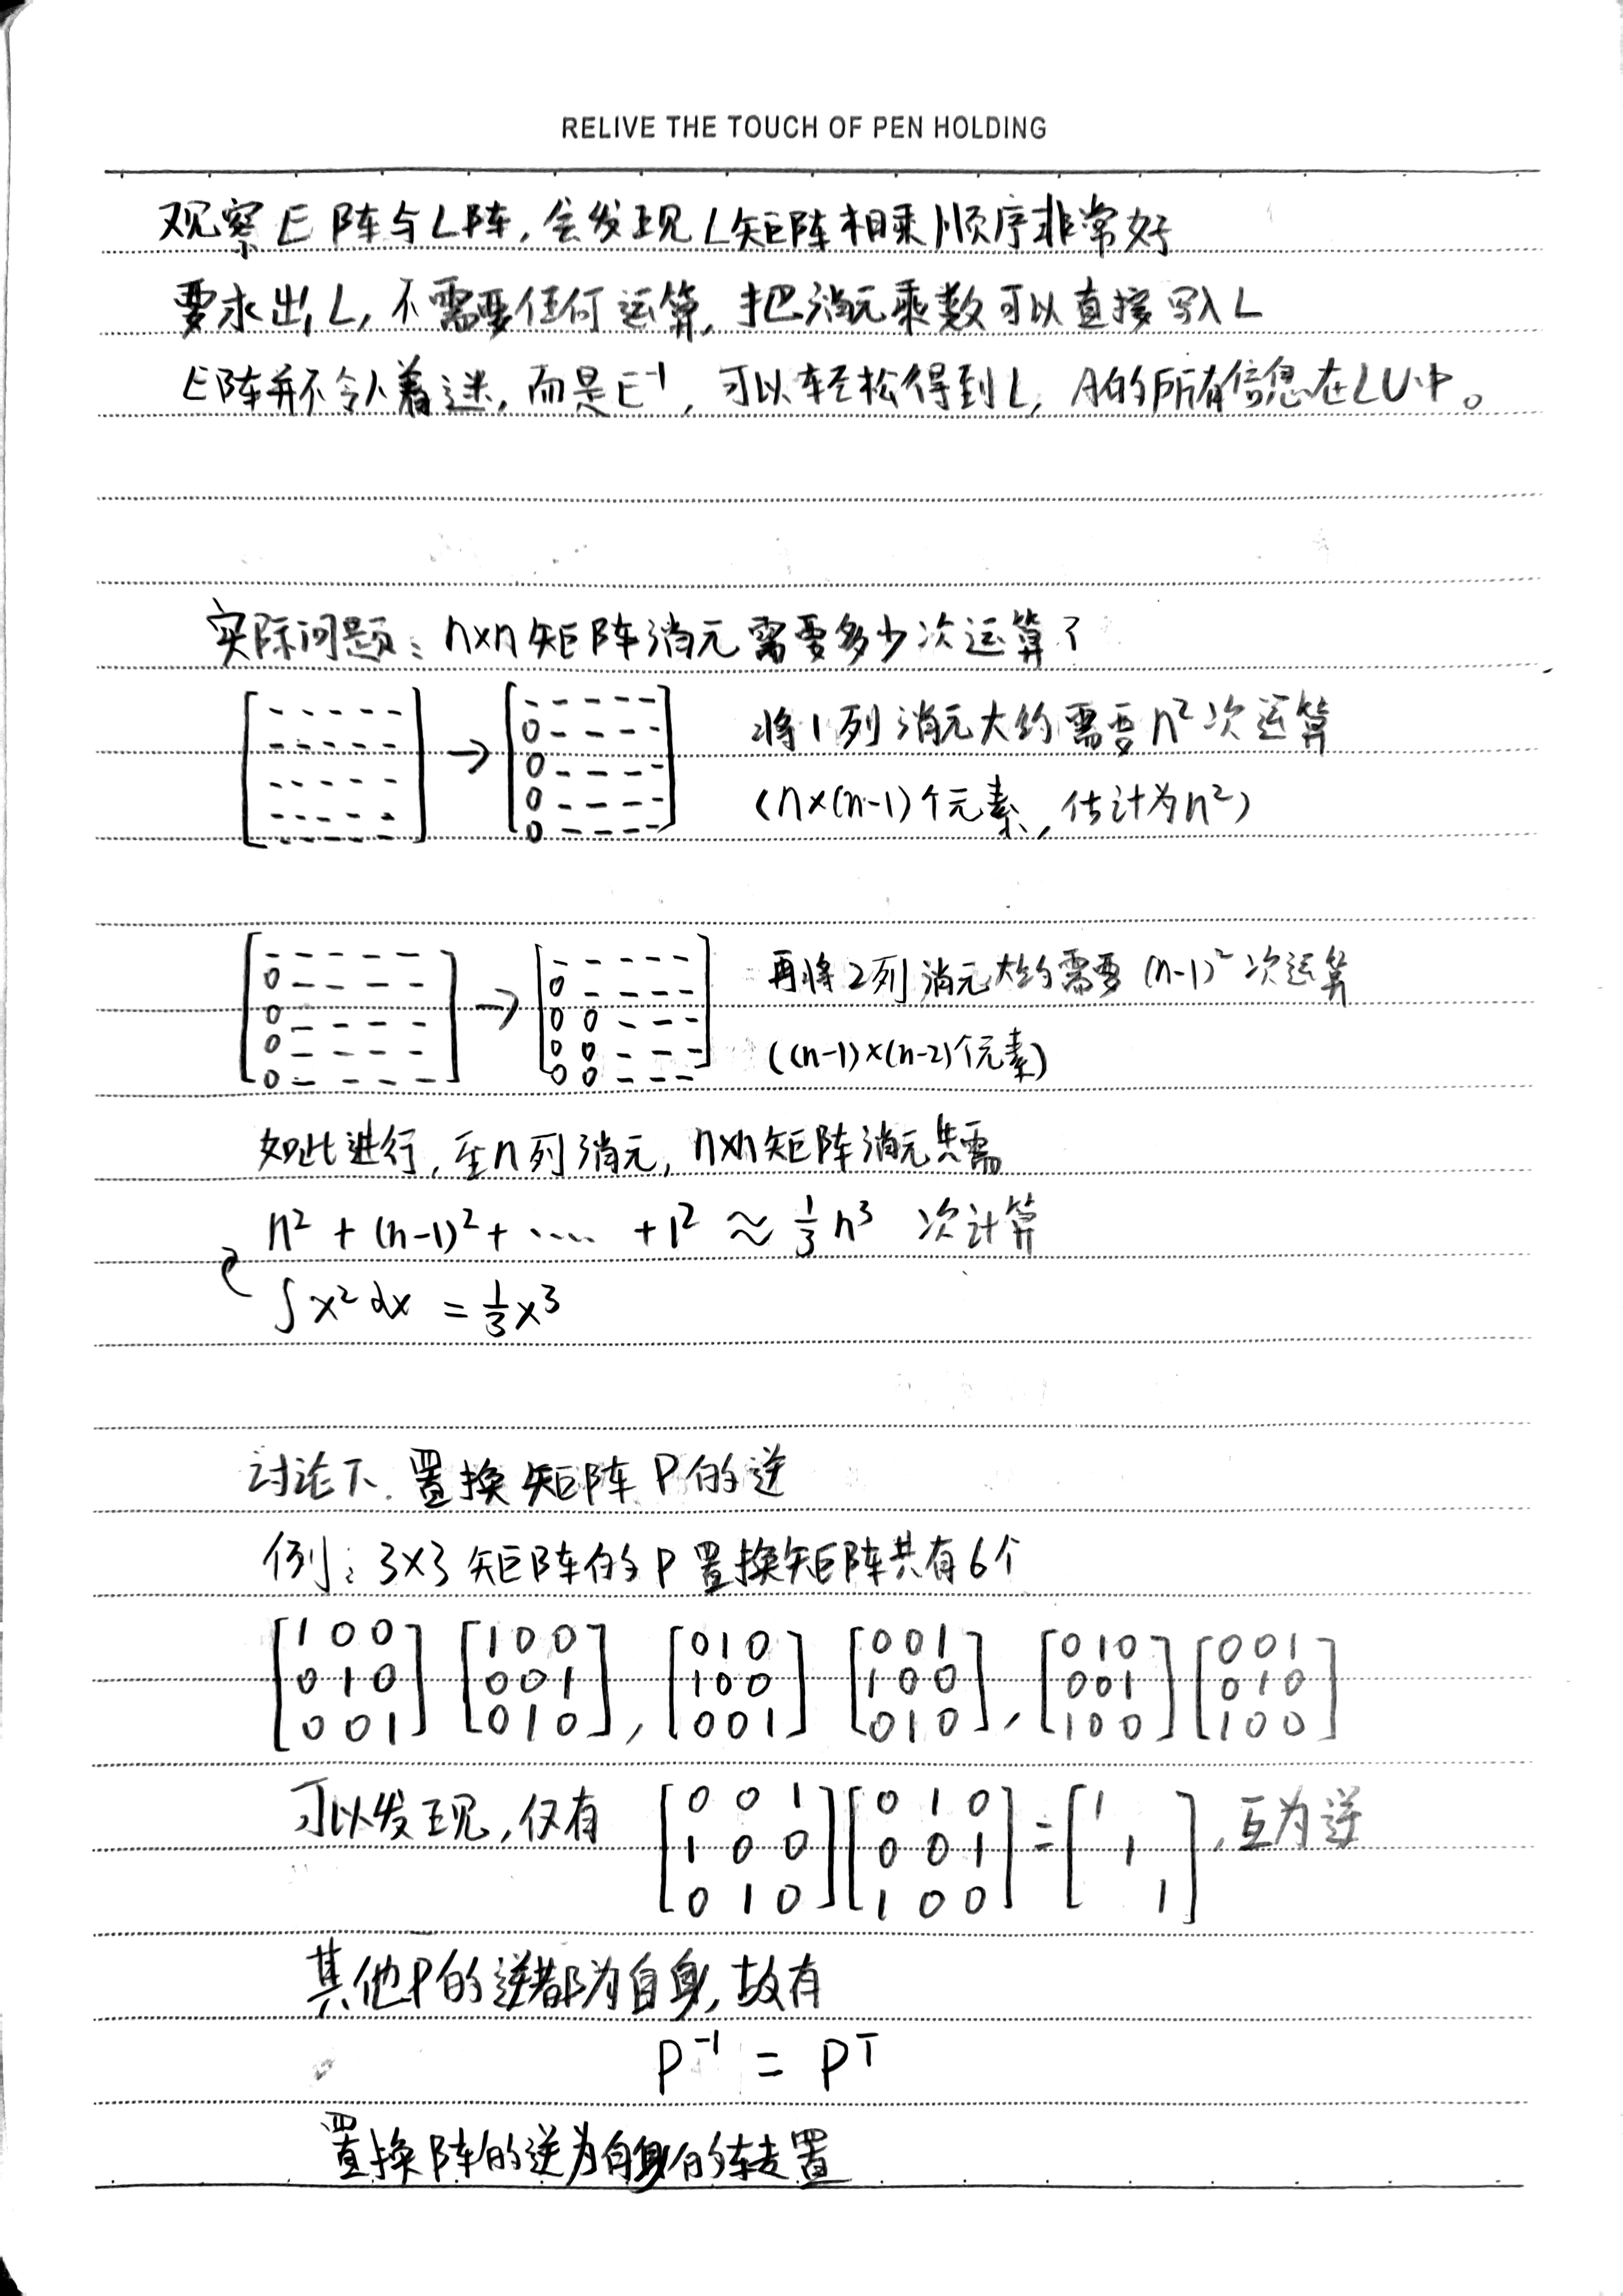 RELIVE THE TOUCH OF PEN HOLDING
观察E阵与L阵,会发现L矩阵相乘顺序非常好
要求出L,不需要任何运算,把消元乘数可以直接写入L
E阵并不令人着迷,而是E⁻¹,可以轻松得到L,A的所有信息在LU中。
实际问题:n×n矩阵消元需要多少次运算?
[ - - - - - ] → [ - - - - - ] 将1列消元大约需要n²次运算
[ - - - - - ] [ 0 - - - - ]
[ - - - - - ] [ 0 - - - - ] (n×(n-1)个元素,估计为n²)
[ - - - - - ] [ 0 - - - - ]
[ - - - - - ] [ 0 - - - - ]
[ - - - - - ] → [ - - - - - ] 再将2列消元大约需要(n-1)²次运算
[ 0 - - - - ] [ 0 - - - - ]
[ 0 - - - - ] [ 0 0 - - - ] ((n-1)×(n-2)个元素)
[ 0 - - - - ] [ 0 0 - - - ]
[ 0 - - - - ] [ 0 0 - - - ]
如此进行,至n列消元,n×n矩阵消元共需
n² + (n-1)² + ···· + 1² ≈ 1/3 n³ 次计算
∫x²dx = 1/3 x³
讨论下.置换矩阵P的逆
例:3×3矩阵的P置换矩阵共有6个
[1 0 0] [1 0 0] [0 1 0] [0 0 1] [0 1 0] [0 0 1]
[0 1 0] [0 0 1] [1 0 0] [1 0 0] [0 0 1] [0 1 0]
[0 0 1] [0 1 0], [0 0 1] [0 1 0], [1 0 0] [1 0 0]
可以发现,仅有 [0 0 1] [0 1 0] = [1 ] ,互为逆
[1 0 0] [0 0 1] [ 1 ]
[0 1 0] [1 0 0] [ 1]
其他P的逆都为自身,故有
P⁻¹ = Pᵀ
置换阵的逆为自身的转置